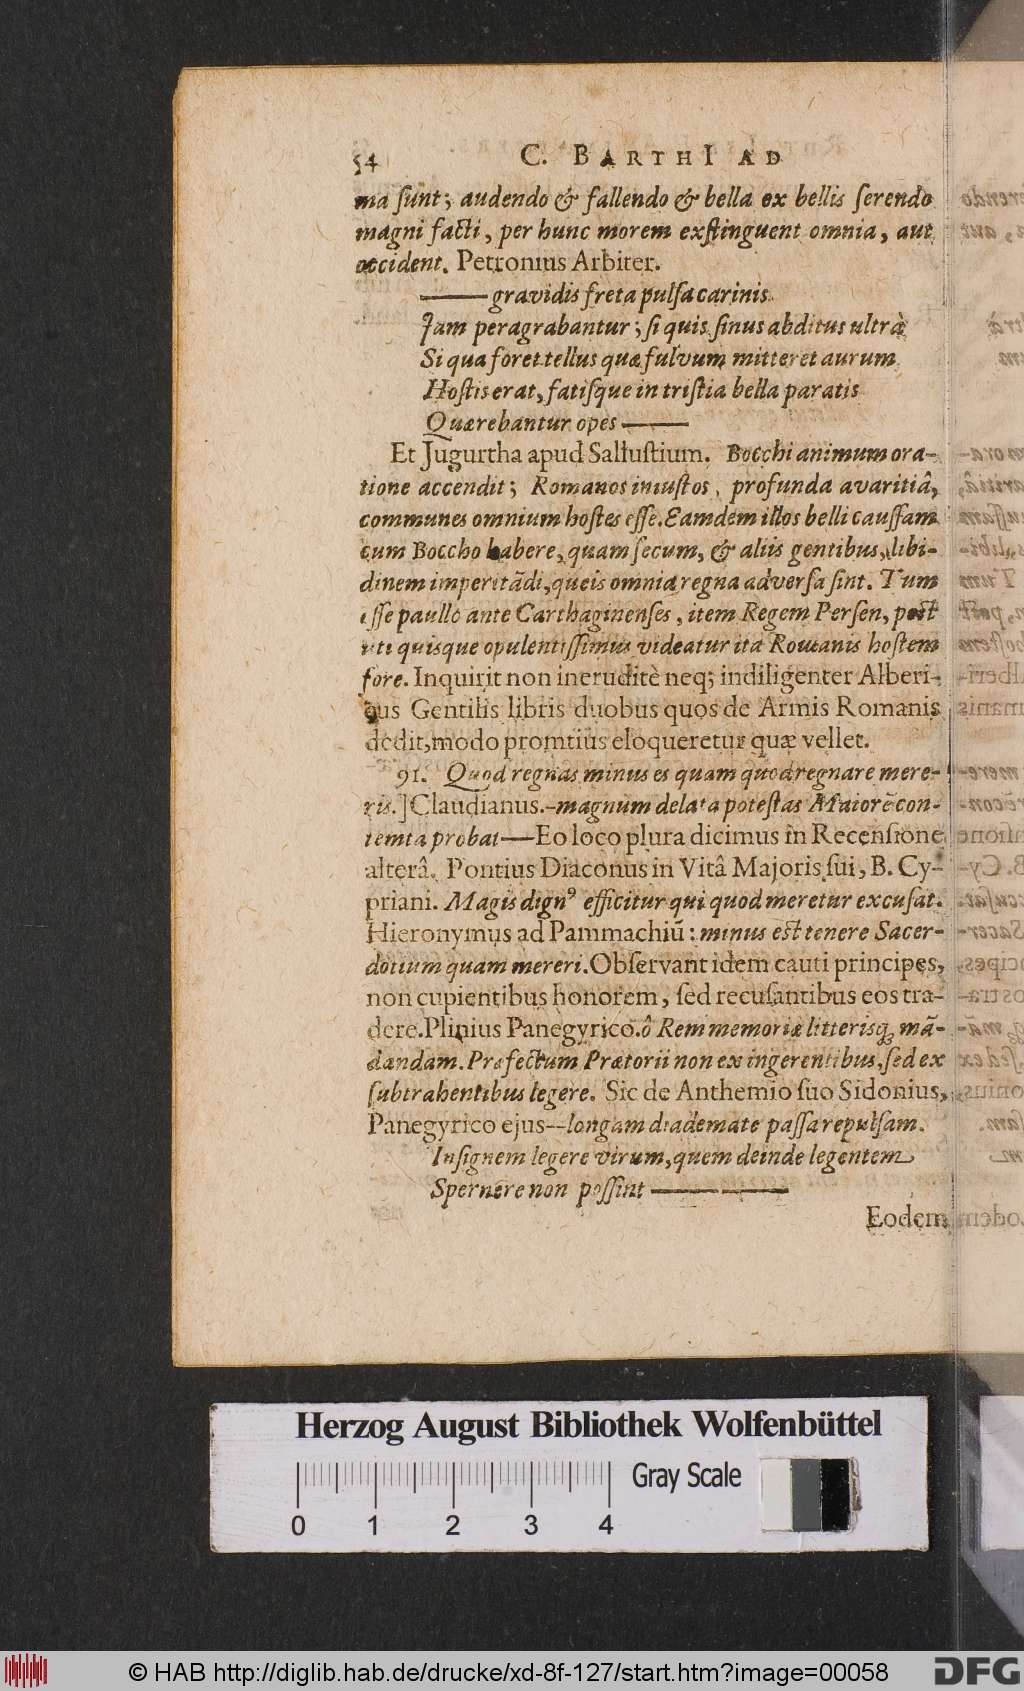 54 C. BARTHI AD
ma ſunt; audendo & fallendo & bella ex bellis ſerendo
magni facti, per hunc morem exſtinguent omnia, aut
occident. Petronius Arbiter.
—— gravidis freta pulſa carinis
Jam peragrabantur; ſi quis ſinus abditus ultrà
Si qua foret tellus quæ fulvum mitteret aurum
Hoſtis erat, fatiſque in triſtia bella paratis
Quærebantur opes ——
Et Jugurtha apud Salluſtium. Bocchi animum ora-
tione accendit; Romanos iniuſtos, profunda avaritiâ,
communes omnium hoſtes eſſe. Eamdem illos belli cauſſam
cum Boccho habere, quam ſecum, & aliis gentibus, libi-
dinem imperitādi, queis omnia regna adverſa ſint. Tum
eſſe paullo ante Carthaginenſes, item Regem Perſen, poſt
uti quisque opulentiſſimus videatur ita Romanis hoſtem
fore. Inquirit non ineruditè neq; indiligenter Alberi-
cus Gentilis libris duobus quos de Armis Romanis
dedit, modo promtius eloqueretur quæ vellet.
91. Quod regnas minus es quam quod regnare mere-
ris.] Claudianus.—magnum delata poteſtas Maiorē con-
temta probat—Eo loco plura dicimus in Recenſione
alterâ. Pontius Diaconus in Vitâ Majoris ſui, B. Cy-
priani. Magis dignꝰ efficitur qui quod meretur excuſat.
Hieronymus ad Pammachiū: minus eſt tenere Sacer-
dotium quam mereri. Obſervant idem cauti principes,
non cupientibus honorem, ſed recuſantibus eos tra-
dere. Plinius Panegyrico. ô Rem memoriæ litterisq; mā-
dandam. Præfectum Prætorii non ex ingerentibus, ſed ex
ſubtrahentibus legere. Sic de Anthemio ſuo Sidonius,
Panegyrico ejus--longam diademate paſſa repulſam.
Inſignem legere virum, quem deinde legentem
Spernere non poſſint —— ——
Eodem
Herzog August Bibliothek Wolfenbüttel
Gray Scale
0 1 2 3 4
© HAB http://diglib.hab.de/drucke/xd-8f-127/start.htm?image=00058
DFG